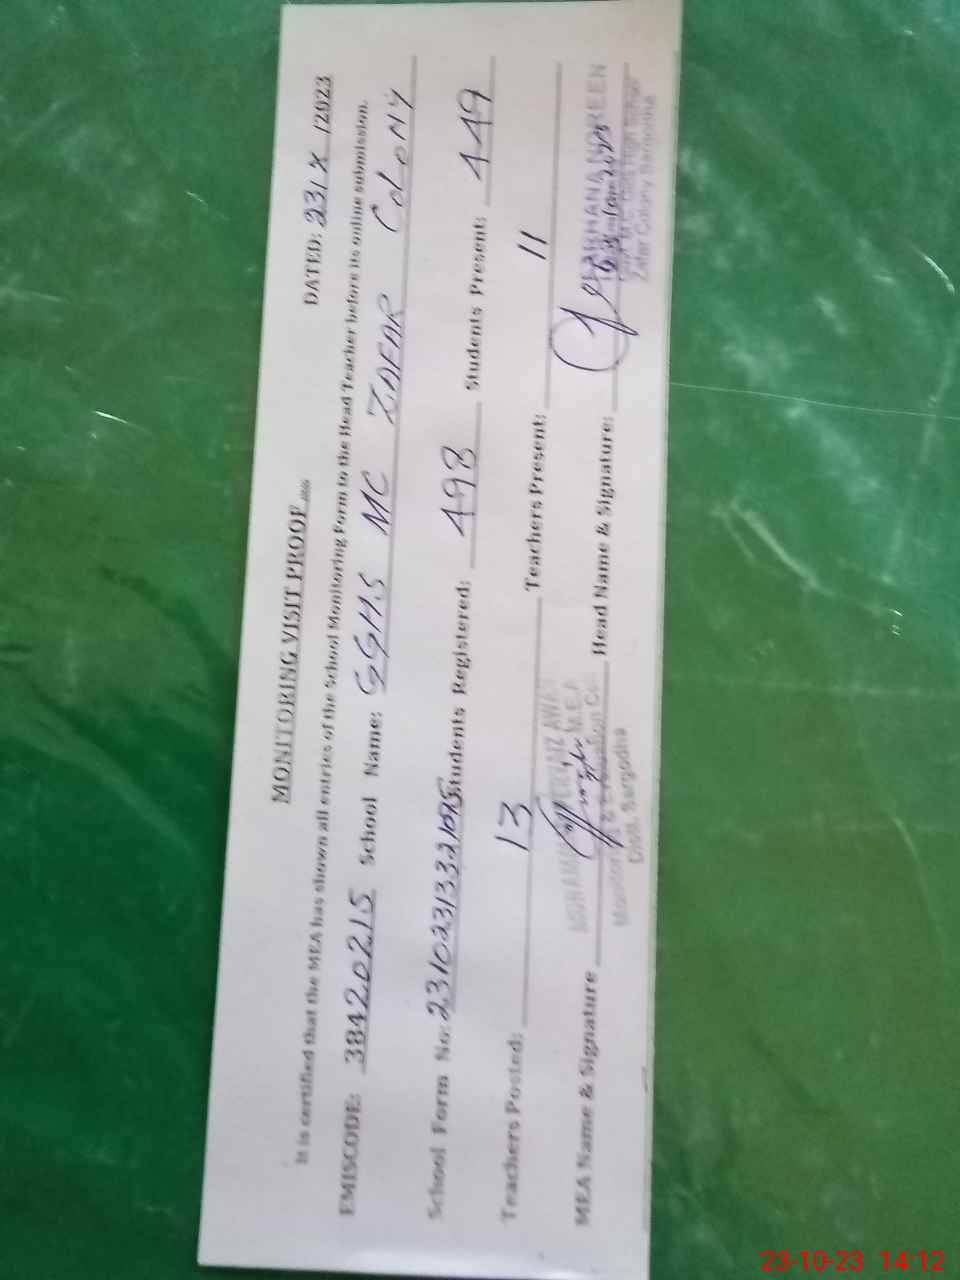 MONITORING VISIT PROOF
DATED: 23/X/2023
It is certified that the MEA has shown all entries of the School Monitoring Form to the Head Teacher before its online submission.
EMISCODE: 38420215 School Name: GGHS MC ZAFAR COLONY
School Form No: Students Registered: 498 Students Present: 449
Teachers Posted: 13 Teachers Present: 11
MEA Name & Signature Head Name & Signature:
AWAN
MEA
Distt. Sargodha
FARHANA NOREEN
Zafar Colony Sargodha
23-10-23 14:12